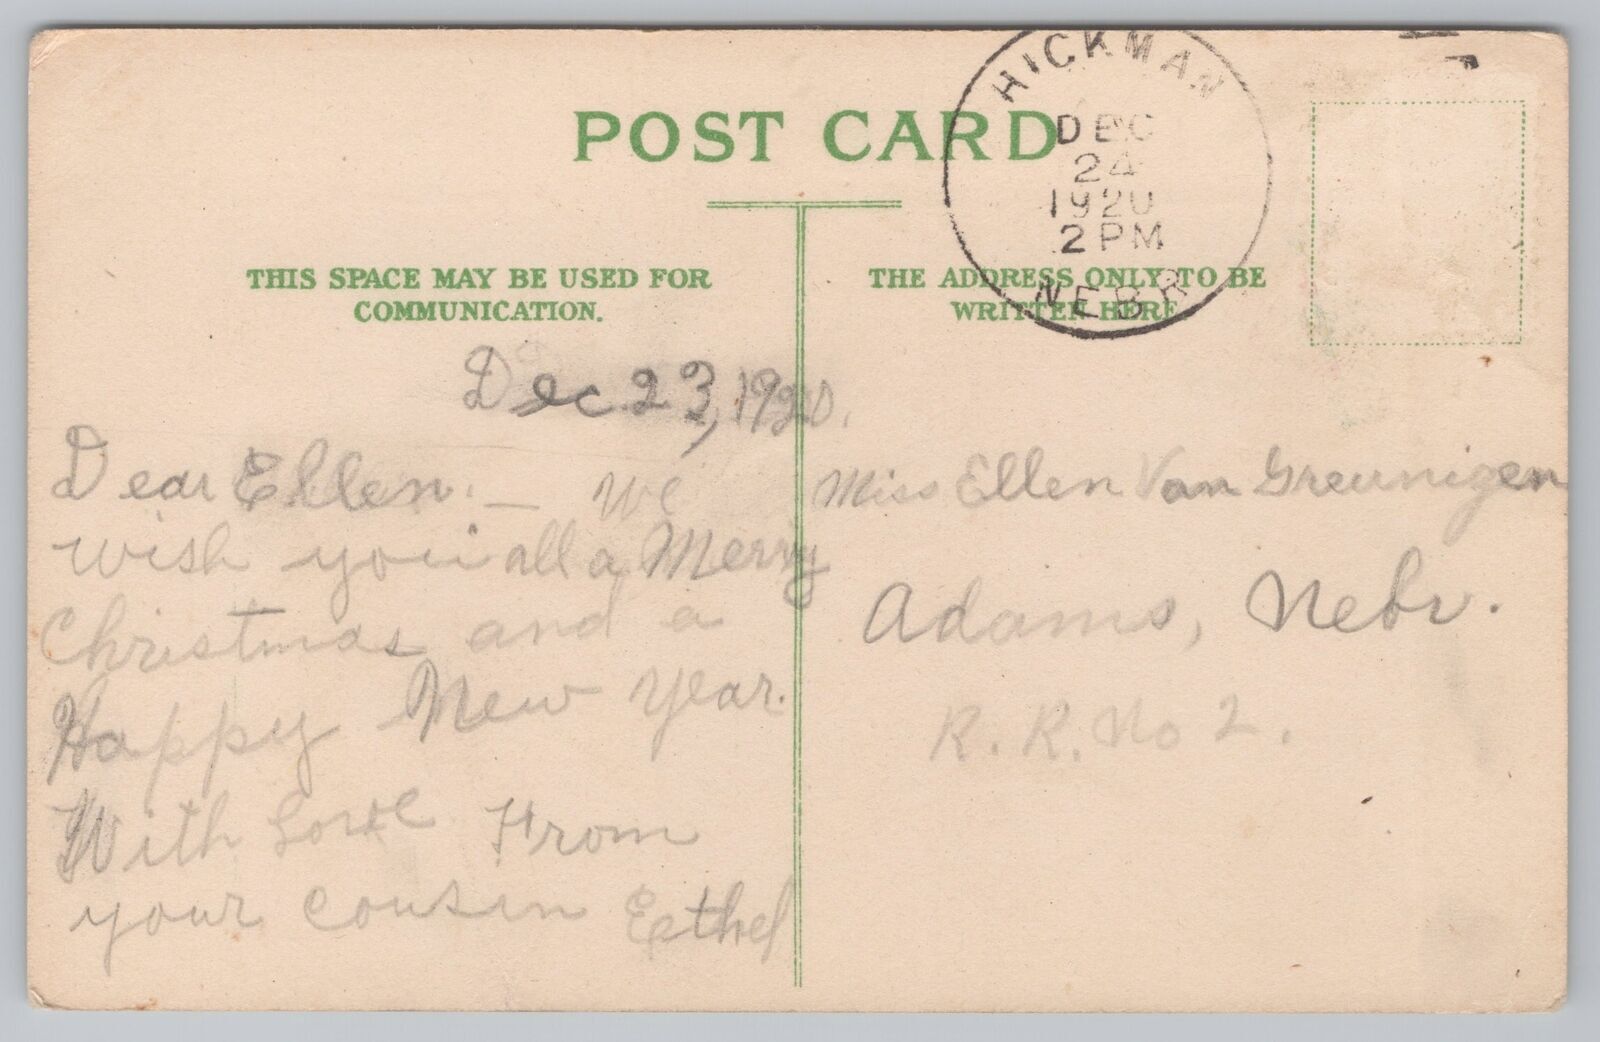 POST CARD
HICKMAN
DEC
24
1920
2 PM
NEBR
THIS SPACE MAY BE USED FOR
COMMUNICATION.
THE ADDRESS ONLY TO BE
WRITTEN HERE
Dec 23, 1920.
Dear Ellen. — We
wish you all a Merry
Christmas and a
Happy New Year.
With Love From
your cousin Eethel
Miss Ellen Van Greunigen
Adams, Nebr.
R. R. No 2.